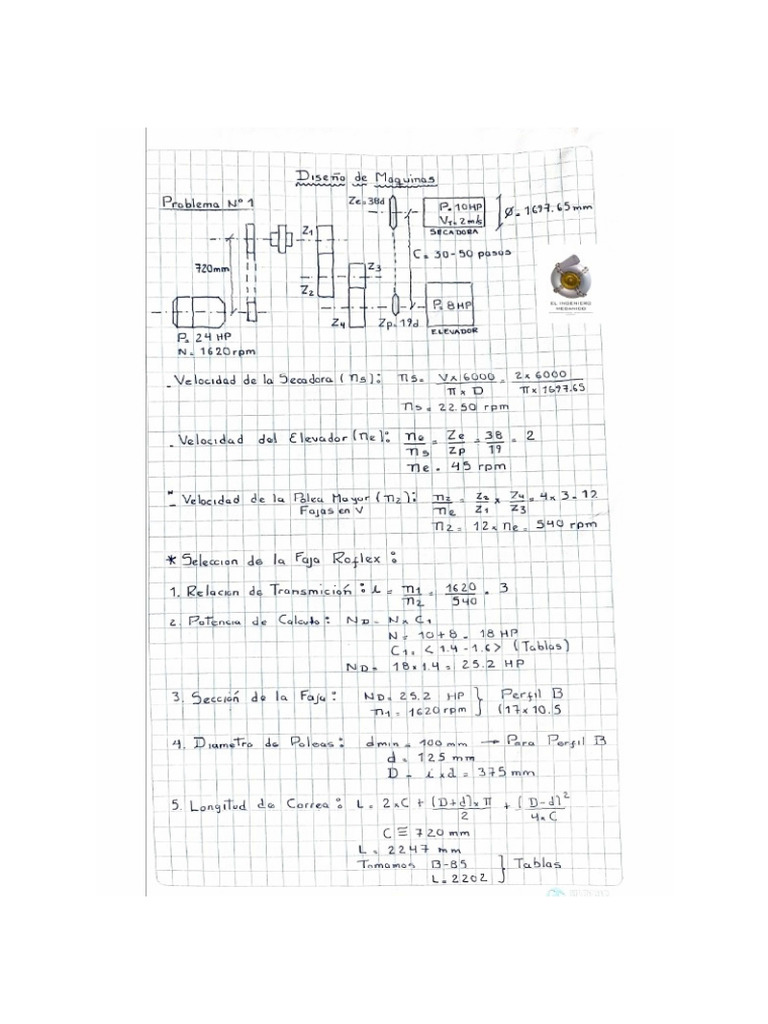 Diseño de Maquinas
Problema N° 1
Ze=38d
P=10HP
VT=2m/s
Ø=1697.65mm
SECADORA
Z1
C=30-50 pasos
720mm
Z3
Z2
P=8HP
Z4
Zp=19d
ELEVADOR
P=24 HP
N=1620rpm
EL INGENIERO
MECANICO
- Velocidad de la Secadora (ns): ns= V×6000 / π×D = 2×6000 / π×1697.65
ns=22.50 rpm
- Velocidad del Elevador (ne): ne/ns = Ze/Zp = 38/19 = 2
ne=45 rpm
- Velocidad de la Polea Mayor (n2): n2/ne = Z2/Z1 × Z4/Z3 = 4×3=12
Fajas en V
n2=12×ne=540 rpm
* Seleccion de la Faja Roflex:
1. Relacion de Transmición: i = n1/n2 = 1620/540 = 3
2. Potencia de Calculo: ND= N×C1
N=10+8=18HP
C1=<1.4-1.6> (Tablas)
ND=18×1.4=25.2 HP
3. Sección de la Faja: ND=25.2 HP } Perfil B
n1=1620rpm } (17×10.5
4. Diametro de Poleas: dmin=100mm → Para Perfil B
d=125 mm
D=i×d=375mm
5. Longitud de Correa: L=2×C+(D+d)×π/2+(D-d)²/4×C
C≡720mm
L=2247 mm
Tomamos B-85 } Tablas
L=2202